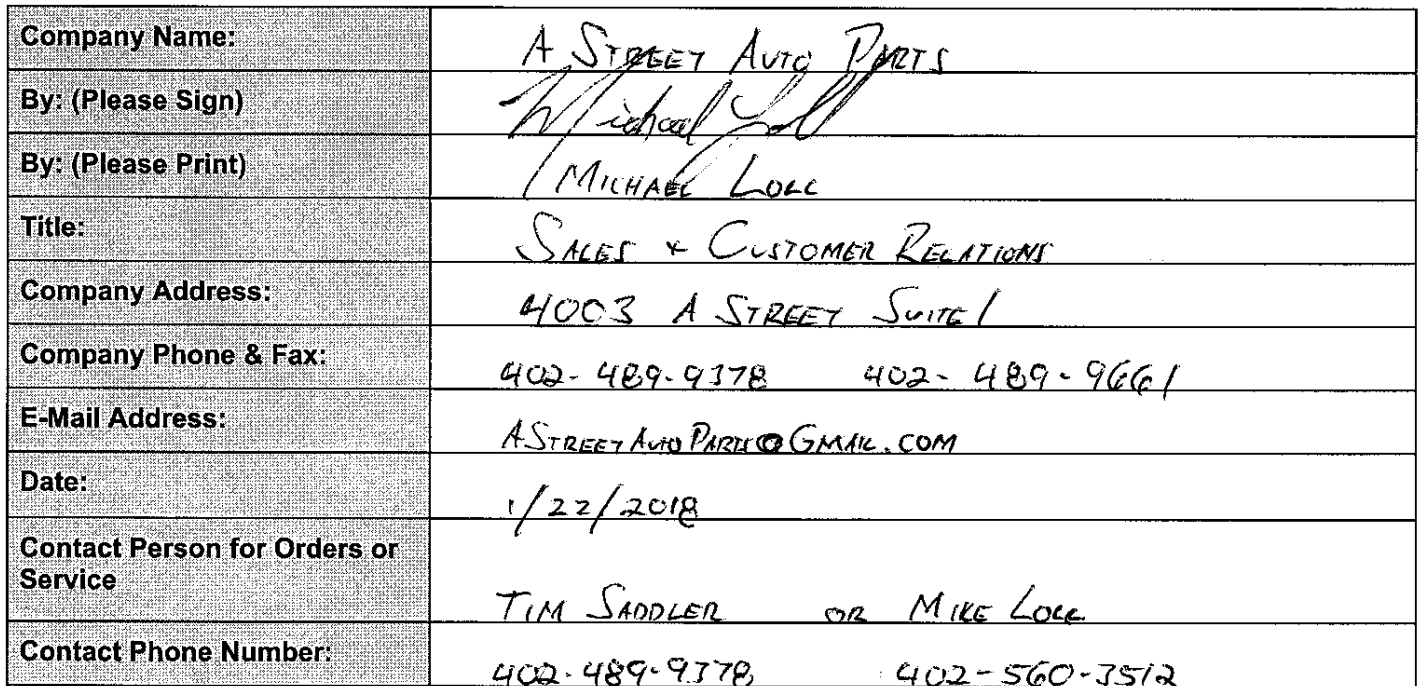 Company Name: A STREET AUTO PARTS
By: (Please Sign) Michael Loll
By: (Please Print) MICHAEL LOLL
Title: SALES + CUSTOMER RELATIONS
Company Address: 4003 A STREET SUITE 1
Company Phone & Fax: 402-489-9378 402-489-9661
E-Mail Address: ASTREETAUTOPARTS@GMAIL.COM
Date: 1/22/2018
Contact Person for Orders or
Service TIM SADDLER OR MIKE LOLL
Contact Phone Number: 402-489-9378 402-560-3512